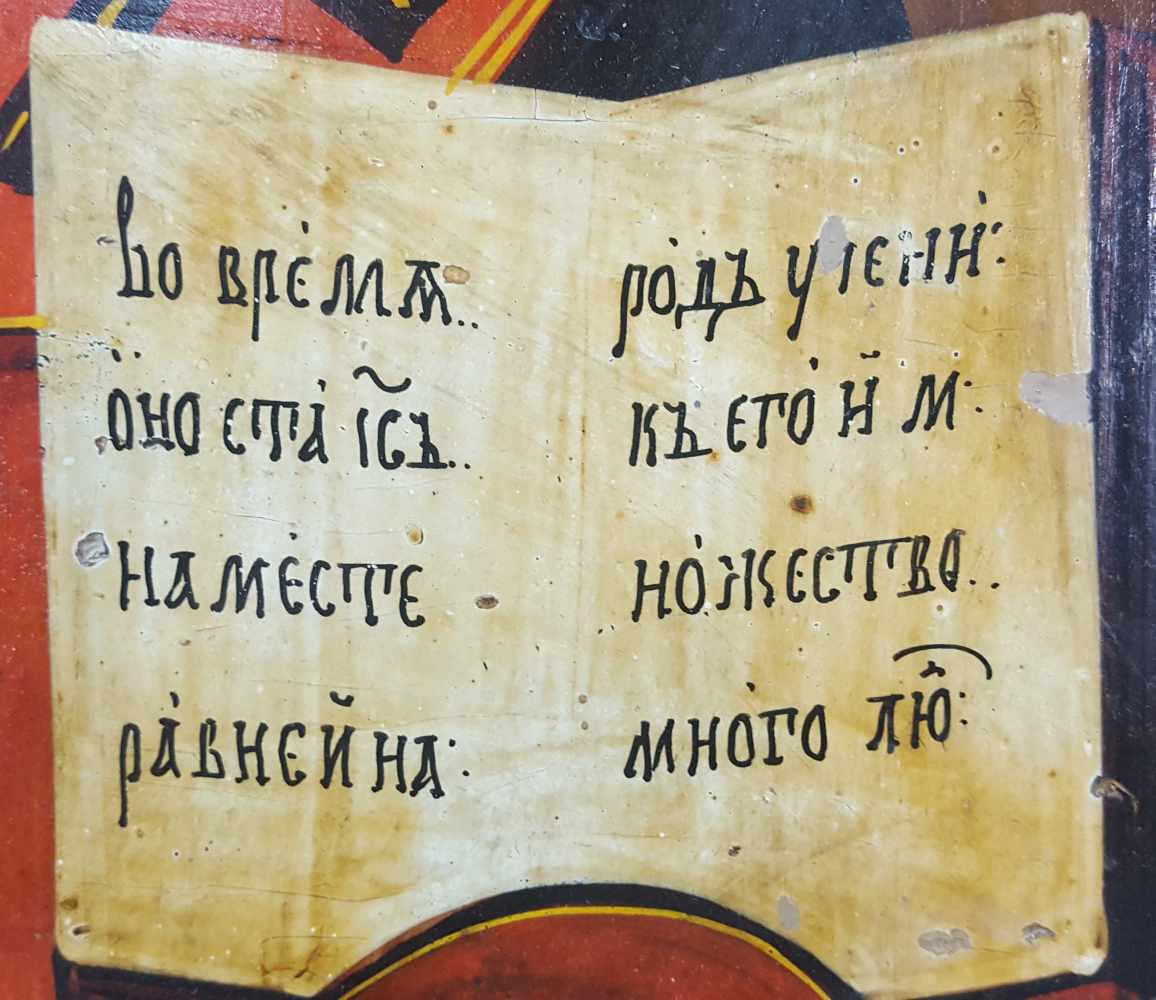 Во врéмѧ..
о́но ста́ і҃съ..
на мéсте
рáвнeй на:
ро́дъ учєни́:
къ єго́ й м:
но́жєство..
мно́го лю̑: